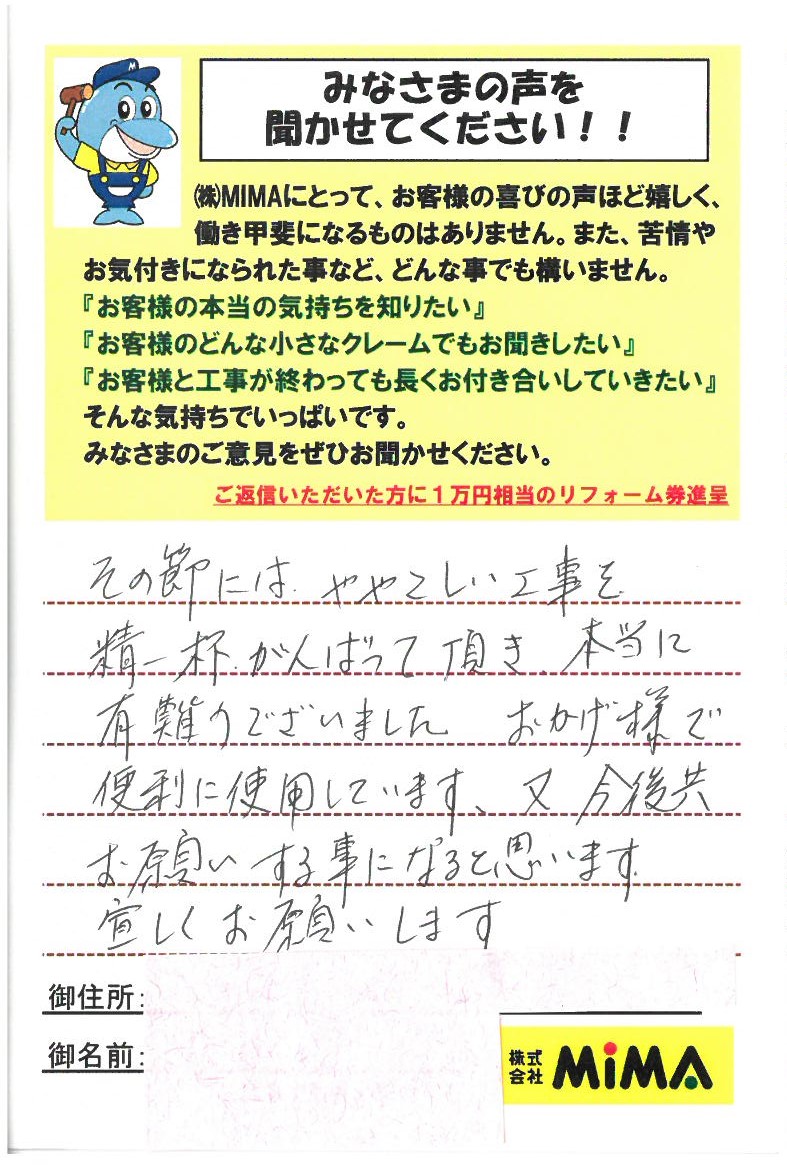 みなさまの声を
聞かせてください！！
㈱MIMAにとって、お客様の喜びの声ほど嬉しく、
働き甲斐になるものはありません。また、苦情や
お気付きになられた事など、どんな事でも構いません。
『お客様の本当の気持ちを知りたい』
『お客様のどんな小さなクレームでもお聞きしたい』
『お客様と工事が終わっても長くお付き合いしていきたい』
そんな気持ちでいっぱいです。
みなさまのご意見をぜひお聞かせください。
ご返信いただいた方に１万円相当のリフォーム券進呈
その節には、ややこしい工事を
精一杯、がんばって頂き、本当に
有難うございました おかげ様で
便利に使用しています、又 今後共
お願いする事になると思います
宜しくお願いします
御住所：
御名前：
株式会社 MiMA
M